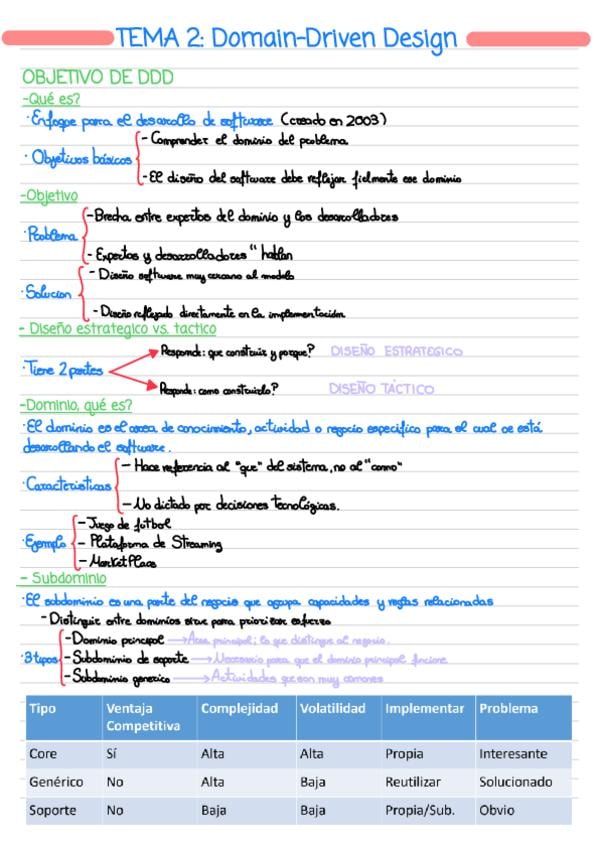 TEMA 2: Domain-Driven Design
OBJETIVO DE DDD
-Qué es?
· Enfoque para el desarollo de software (creado en 2003)
· Objetivos básicos
- Comprender el dominio del problema
- El diseño del software debe reflejar fielmente ese dominio
-Objetivo
· Problema
- Brecha entre expertos del dominio y los desarrolladores
- Expertos y desarrolladores "hablan
· Solucion
- Diseño software muy cercano al modelo
- Diseño reflejado directamente en la implementación
- Diseño estrategico vs. tactico
· Tiene 2 partes
Responde: que construir y porque? DISEÑO ESTRATEGICO
Responde: como construirlo? DISEÑO TÁCTICO
-Dominio, qué es?
· El dominio es el area de conocimiento, actividad o negocio especifico para el cual se está
desarollando el software.
· Caracteristicas
- Hace referencia al "que" del sistema, no al "como"
- No dictado por decisiones tecnológicas.
· Ejemplo
- Juego de fútbol
- Plataforma de Streaming
- MarketPlace
- Subdominio
· El subdominio es una parte del negocio que agrupa capacidades y reglas relacionadas
- Distinguir entre dominios sirve para priorizar esfuerzo
· 3 tipos
- Dominio principal → Area principal; lo que distingue al negocio.
- Subdominio de soporte → Necesario para que el dominio principal funcione
- Subdominio generico → Actividades que son muy comunes
Tipo Ventaja Competitiva Complejidad Volatilidad Implementar Problema
Core Sí Alta Alta Propia Interesante
Genérico No Alta Baja Reutilizar Solucionado
Soporte No Baja Baja Propia/Sub. Obvio